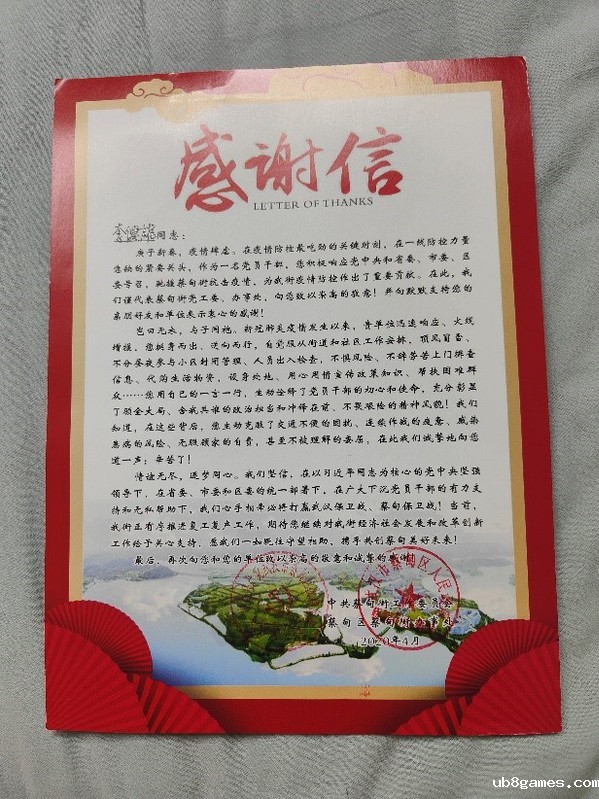 感谢信
LETTER OF THANKS
同志：
庚子新春，疫情肆虐。在疫情防控最吃劲的关键时刻，在一线防控力量
急缺的紧要关头，作为一名党员干部，您积极响应党中央和省委、市委、区
委号召，驰援蔡甸街抗击疫情，为我街疫情防控作出了重要贡献。在此，我
们谨代表蔡甸街党工委、办事处，向您致以崇高的敬意！并向默默支持您的
亲朋好友和单位表示衷心的感谢！
岂曰无衣，与子同袍。新冠肺炎疫情发生以来，贵单位迅速响应、火线
增援。您挺身而出、逆向而行，自觉服从街道和社区工作安排，顶风冒雪、
不分昼夜参与小区封闭管理、人员出入检查，不惧风险、不辞劳苦上门排查
信息、代购生活物资，设身处地、用心用情宣传政策知识、帮扶困难群
众……您用自己的一言一行，生动诠释了党员干部的初心和使命，充分彰显
了顾全大局、舍我其谁的政治担当和冲锋在前、不畏艰险的精神风貌！我们
知道，在这些背后，您主动克服了交通不便的困扰、连续作战的疲惫、感染
患病的风险、无暇顾家的自责，甚至不被理解的委屈，在此我们诚挚地向您
道一声：辛苦了！
情谊无尽，逐梦同心。我们坚信，在以习近平同志为核心的党中央坚强
领导下，在省委、市委和区委的统一部署下，在广大下沉党员干部的有力支
持和无私帮助下，我们心手相牵必将打赢武汉保卫战、蔡甸保卫战！当前，
我街正有序推进复工复产工作，期待您继续对我街经济社会发展和改革创新
工作给予关心支持，愿我们一如既往守望相助，携手共创蔡甸美好未来！
最后，再次向您和您的单位致以崇高的敬意和诚挚的感谢！
中共蔡甸街工作委员会
蔡甸区蔡甸街办事处
2020年4月
ub8games.com